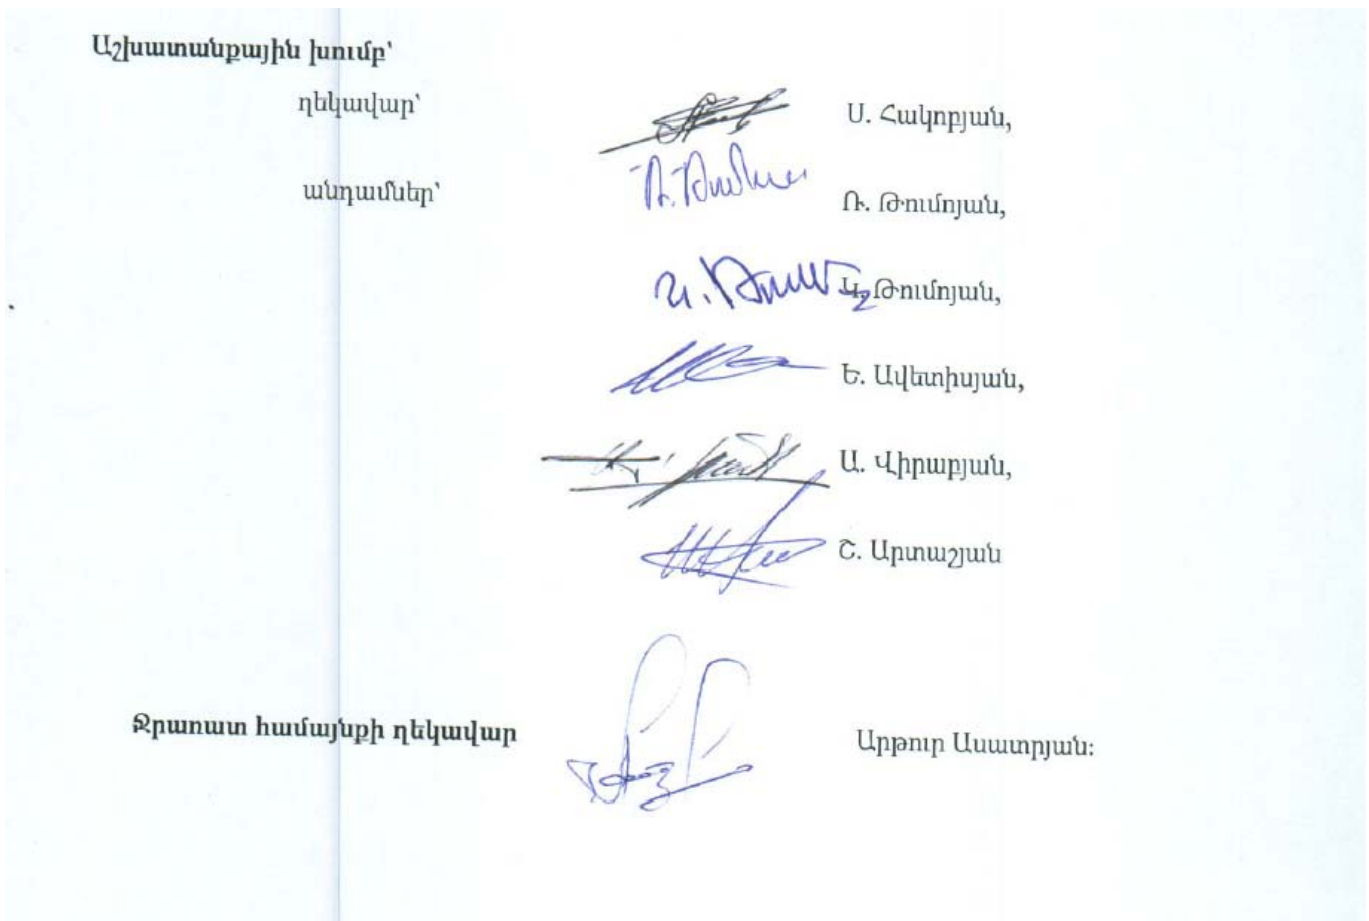 Աշխատանքային խումբ՝
ղեկավար՝ Ս. Հակոբյան,
անդամներ՝ Ռ. Թումոյան,
Կ. Թումոյան,
Ե. Ավետիսյան,
Ա. Վիրաբյան,
Շ. Արտաշյան
Ջրառատ համայնքի ղեկավար Արթուր Ասատրյան։